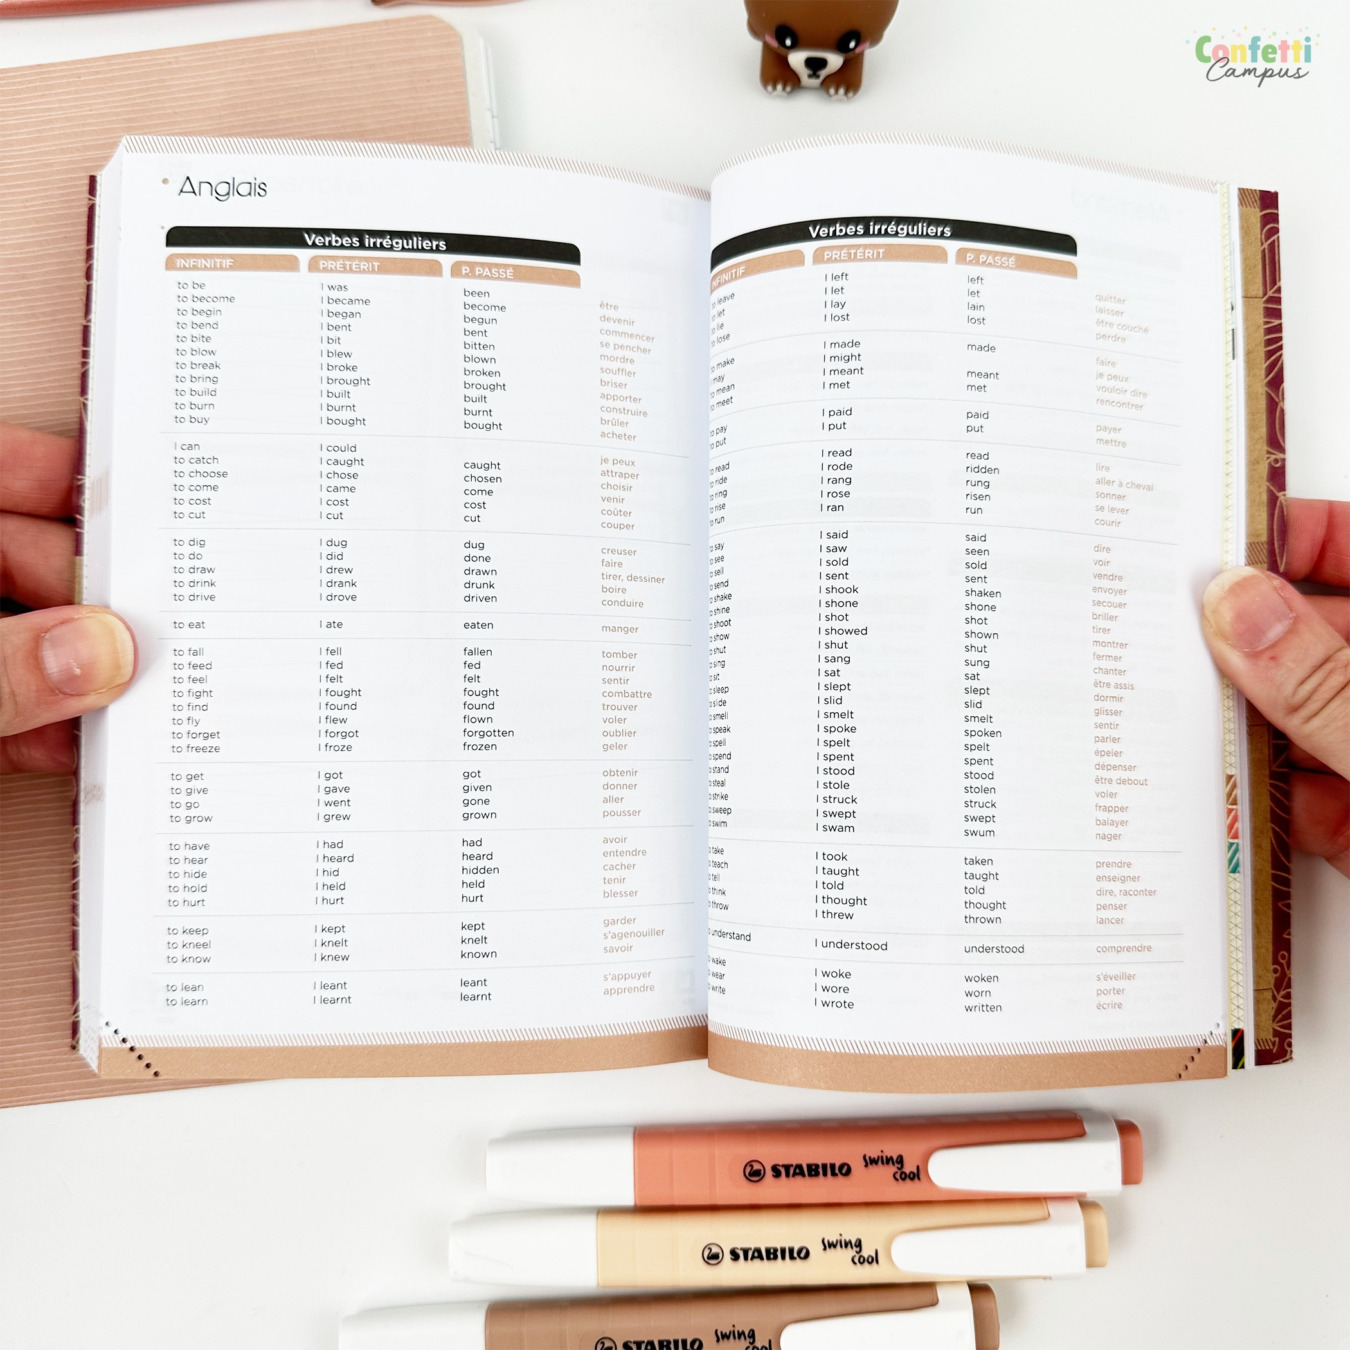 Confetti
Campus
Anglais
Verbes irréguliers
INFINITIF PRÉTÉRIT P. PASSÉ
to be I was been être
to become I became become devenir
to begin I began begun commencer
to bend I bent bent se pencher
to bite I bit bitten mordre
to blow I blew blown souffler
to break I broke broken briser
to bring I brought brought apporter
to build I built built construire
to burn I burnt burnt brûler
to buy I bought bought acheter
I can I could je peux
to catch I caught caught attraper
to choose I chose chosen choisir
to come I came come venir
to cost I cost cost coûter
to cut I cut cut couper
to dig I dug dug creuser
to do I did done faire
to draw I drew drawn tirer, dessiner
to drink I drank drunk boire
to drive I drove driven conduire
to eat I ate eaten manger
to fall I fell fallen tomber
to feed I fed fed nourrir
to feel I felt felt sentir
to fight I fought fought combattre
to find I found found trouver
to fly I flew flown voler
to forget I forgot forgotten oublier
to freeze I froze frozen geler
to get I got got obtenir
to give I gave given donner
to go I went gone aller
to grow I grew grown pousser
to have I had had avoir
to hear I heard heard entendre
to hide I hid hidden cacher
to hold I held held tenir
to hurt I hurt hurt blesser
to keep I kept kept garder
to kneel I knelt knelt s'agenouiller
to know I knew known savoir
to lean I leant leant s'appuyer
to learn I learnt learnt apprendre
Verbes irréguliers
INFINITIF PRÉTÉRIT P. PASSÉ
to leave I left left quitter
to let I let let laisser
to lie I lay lain être couché
to lose I lost lost perdre
to make I made made faire
may I might je peux
to mean I meant meant vouloir dire
to meet I met met rencontrer
to pay I paid paid payer
to put I put put mettre
to read I read read lire
to ride I rode ridden aller à cheval
to ring I rang rung sonner
to rise I rose risen se lever
to run I ran run courir
to say I said said dire
to see I saw seen voir
to sell I sold sold vendre
to send I sent sent envoyer
to shake I shook shaken secouer
to shine I shone shone briller
to shoot I shot shot tirer
to show I showed shown montrer
to shut I shut shut fermer
to sing I sang sung chanter
to sit I sat sat être assis
to sleep I slept slept dormir
to slide I slid slid glisser
to smell I smelt smelt sentir
to speak I spoke spoken parler
to spell I spelt spelt épeler
to spend I spent spent dépenser
to stand I stood stood être debout
to steal I stole stolen voler
to strike I struck struck frapper
to sweep I swept swept balayer
to swim I swam swum nager
to take I took taken prendre
to teach I taught taught enseigner
to tell I told told dire, raconter
to think I thought thought penser
to throw I threw thrown lancer
to understand I understood understood comprendre
to wake I woke woken s'éveiller
to wear I wore worn porter
to write I wrote written écrire
STABILO swing cool
STABILO swing cool
STABILO swing cool